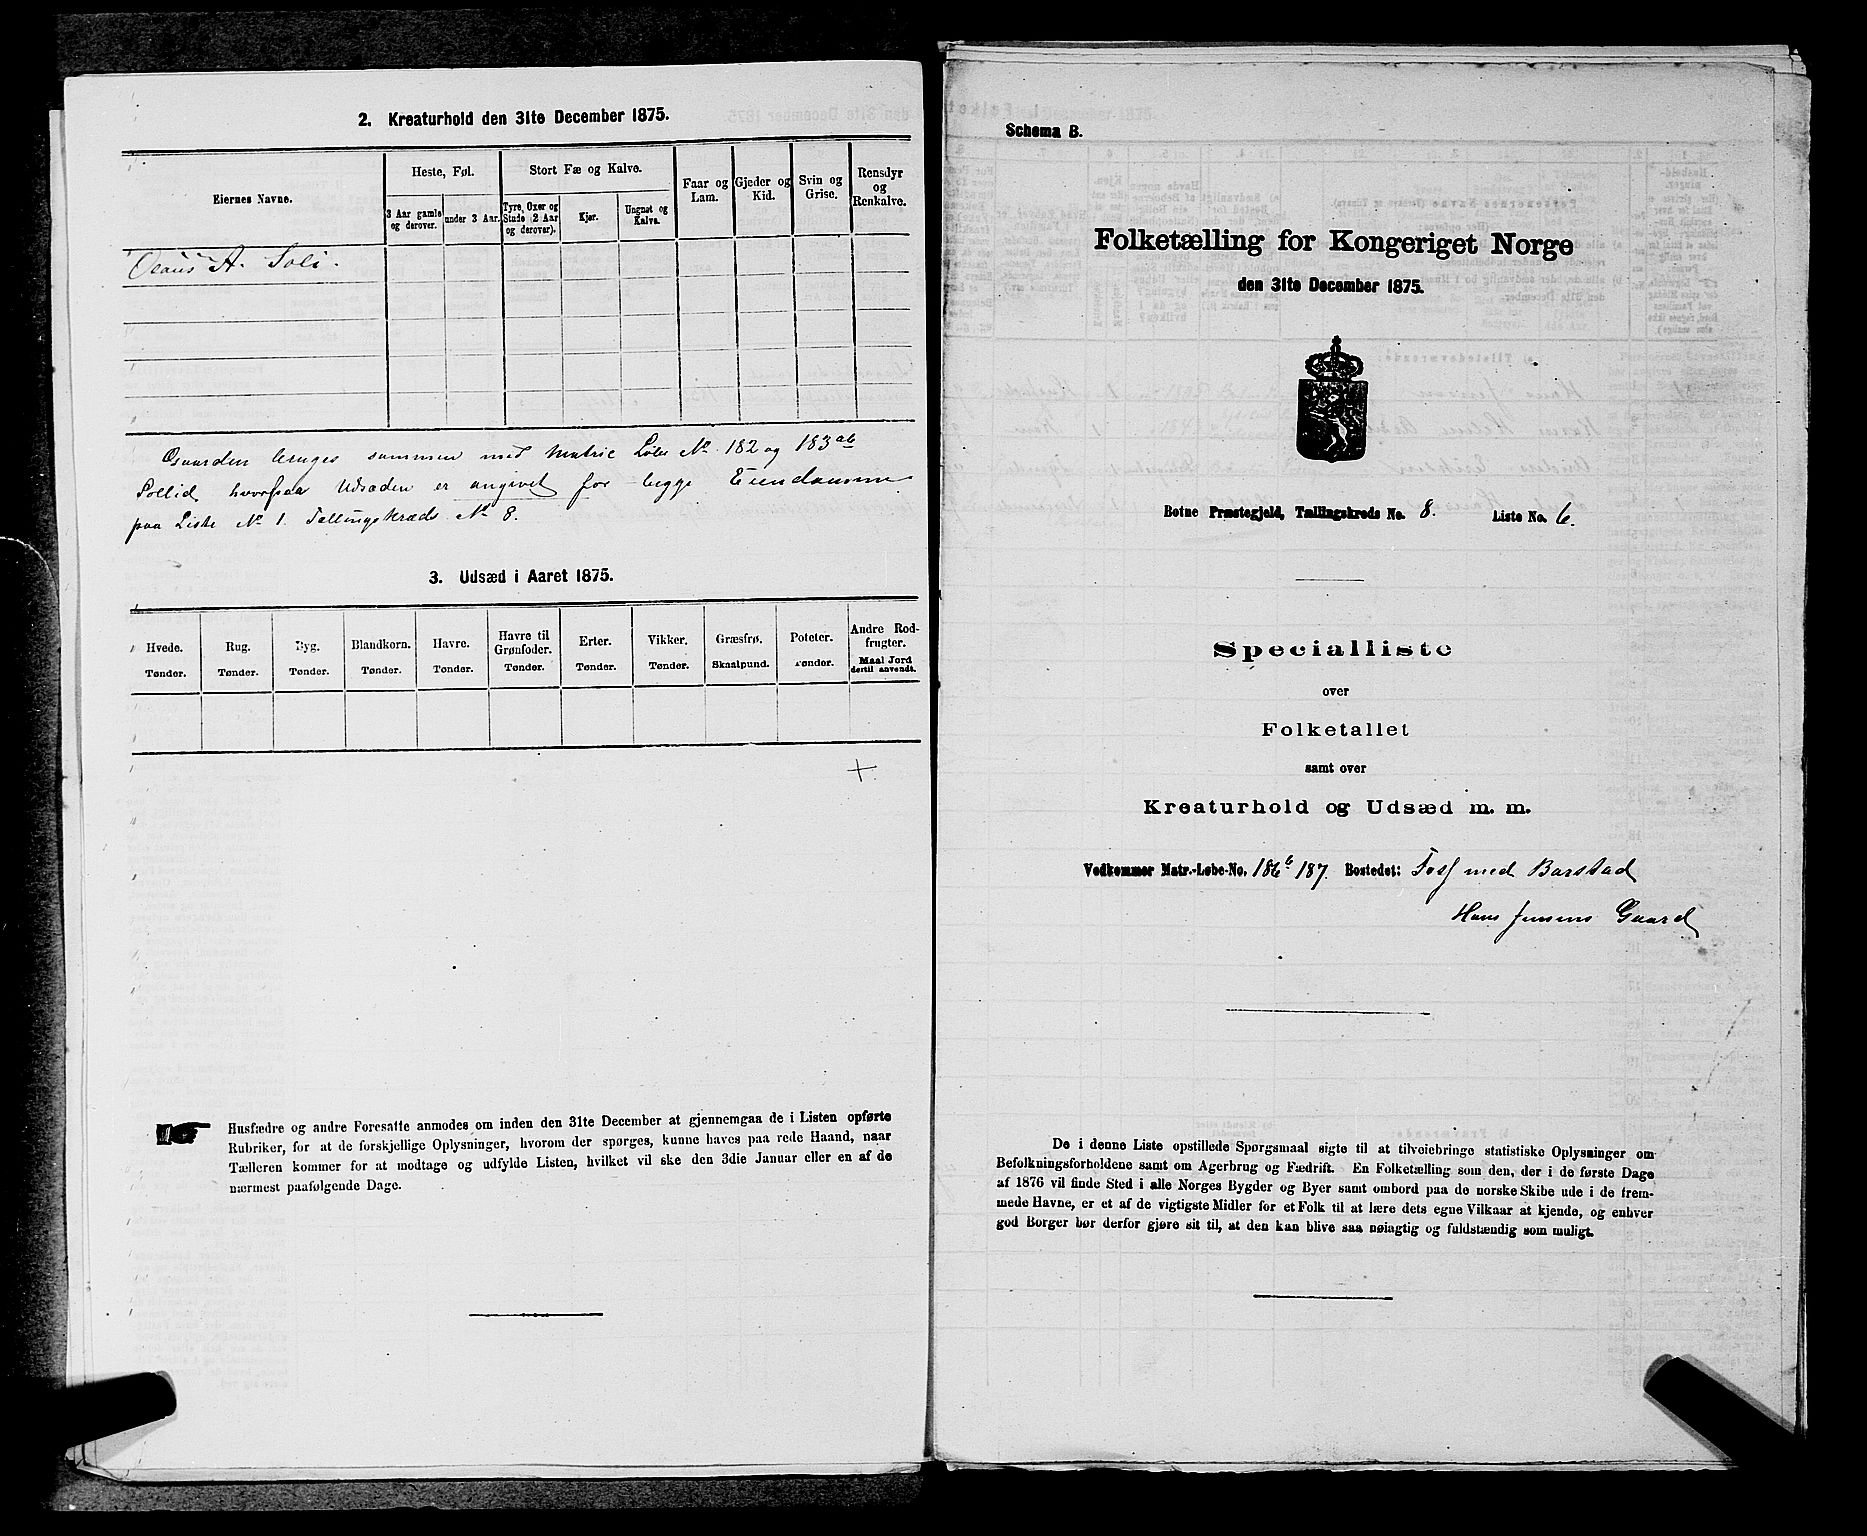 2. Kreaturhold den 31te December 1875.
Eiernes Navne.
Heste, Føl.
Stort Fæ og Kalve.
Faar og Lam.
Gjeder og Kid.
Svin og Grise.
Rensdyr og Renkalve.
3 Aar gamle og derover.
under 3 Aar.
Tyre, Oxer og Stude (2 Aar og derover).
Kjør.
Ungnøt og Kalve.
Olaus A. Soli.
Gaarden bruges sammen med Matric Løbe No 182 og 183ab
Sollid hvorpaa Udsæden er angivet for begge Eiendomme
paa Liste No 1. Tællingskreds No 8.
3. Udsæd i Aaret 1875.
Hvede. Rug. Byg. Blandkorn. Havre. Havre til Grønfoder. Erter. Vikker. Græsfrø. Poteter. Andre Rodfrugter.
Tønder. Tønder. Tønder. Tønder. Tønder. Tønder. Tønder. Tønder. Skaalpund. Tønder. Maal Jord dertil anvendt.
+
Husfædre og andre Foresatte anmodes om inden den 31te December at gjennemgaa de i Listen opførte
Rubriker, for at de forskjellige Oplysninger, hvorom der spørges, kunne haves paa rede Haand, naar
Tælleren kommer for at modtage og udfylde Listen, hvilket vil ske den 3die Januar eller en af de
nærmest paafølgende Dage.
Schema B.
Folketælling for Kongeriget Norge
den 31te December 1875.
Botne Præstegjeld, Tællingskreds No. 8. Liste No. 6.
Specialliste
over
Folketallet
samt over
Kreaturhold og Udsæd m. m.
Vedkommer Matr.-Løbe-No. 186b 187. Bostedet: med Barstad
Hans Jensens Gaard
De i denne Liste opstillede Spørgsmaal sigte til at tilveiebringe statistiske Oplysninger om
Befolkningsforholdene samt om Agerbrug og Fædrift. En Folketælling som den, der i de første Dage
af 1876 vil finde Sted i alle Norges Bygder og Byer samt ombord paa de norske Skibe ude i de frem-
mede Havne, er et af de vigtigste Midler for et Folk til at lære dets egne Vilkaar at kjende, og enhver
god Borger bør derfor gjøre sit til, at den kan blive saa nøiagtig og fuldstændig som muligt.